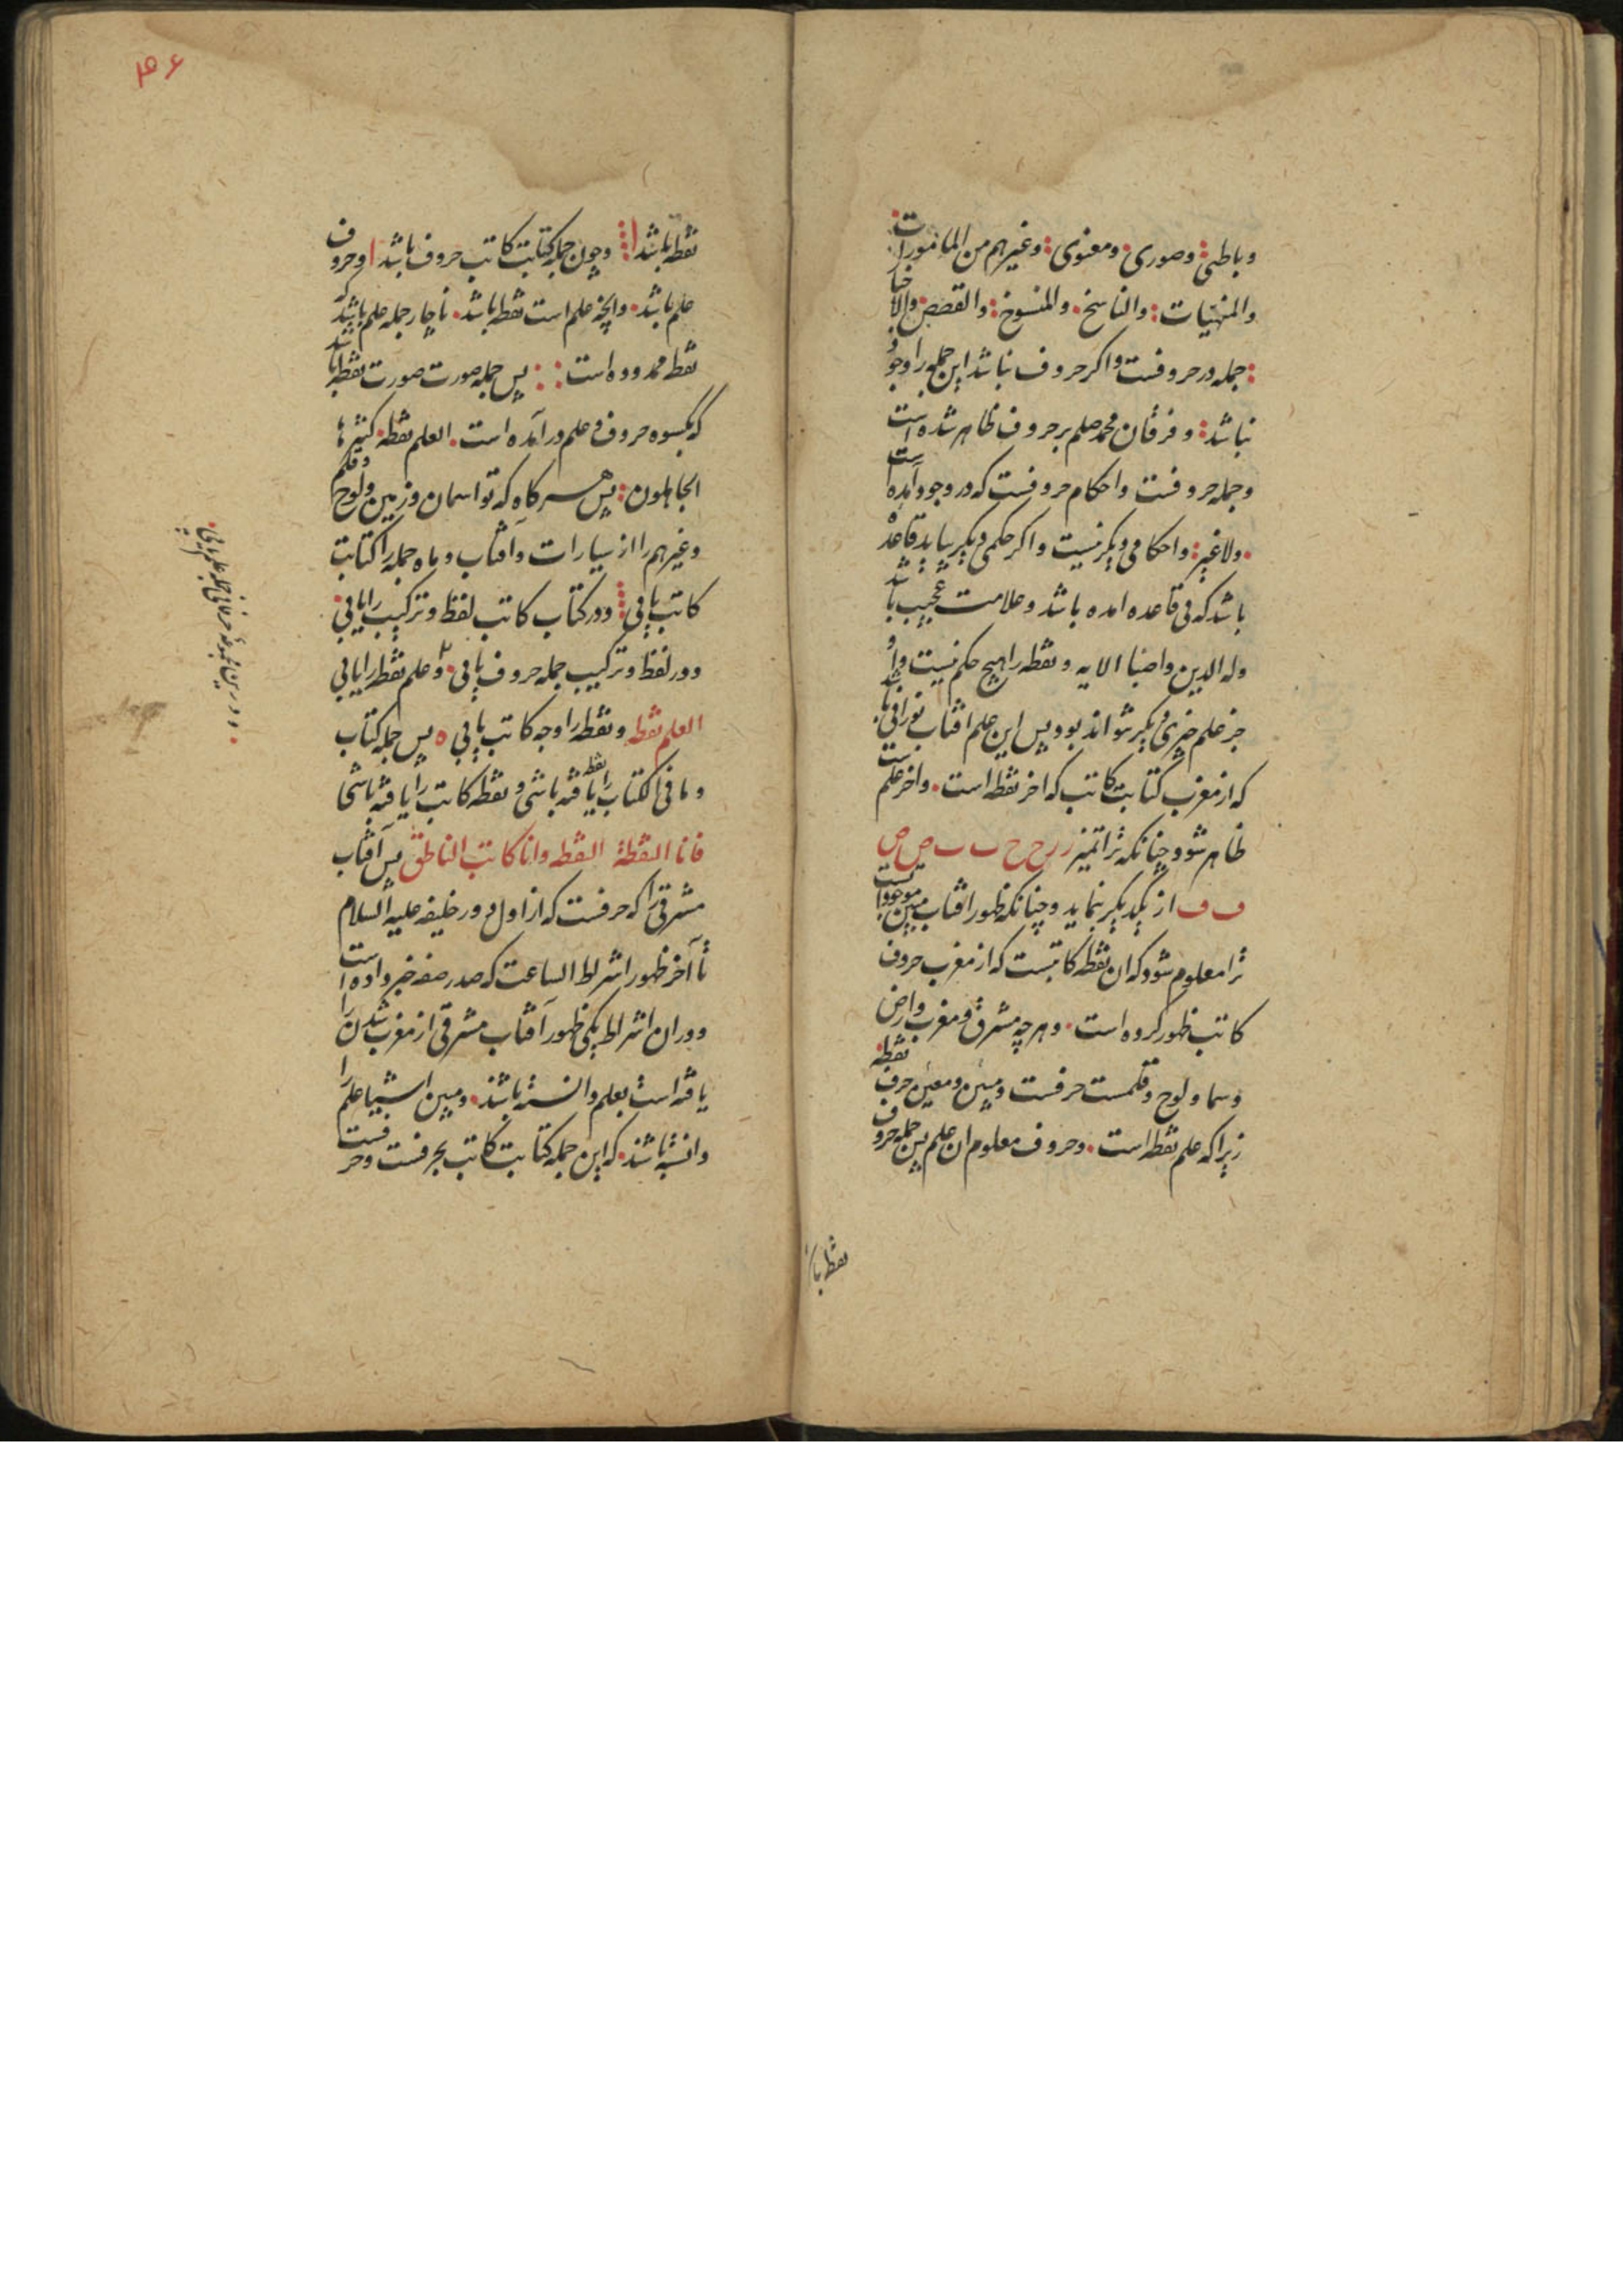 وباطنی وصوری ومعنوی وغیرهم من المامورات
والمنهیات والناسخ والمنسوخ والقصص والاخبار
جمله در حروفست واکر حروف نباشد این جمله را وجود
نباشد وفرقان محمد صلعم بر حروف ظاهر شده است
وجمله حروفست واحکام حروفست که در وجود آمده است
ولا غیر واحکامی دیکر نیست واکر حکمی دیکر بیاید قاعده
باشد که فی قاعده امده باشد وعلامت عجیب باشد
وله الدین واصبا الایه ونقطه را هیچ حکم نیست واو
جز علم چیزی دیکر نتواند بود پس این علم افتاب نورانی باشد
که از مغرب کتابت کاتب که اخر نقطه است واخر علم است
ظاهر شود چنانکه ترا تمیز ر ر ح ح ب ب ص ص
ف ف از یکدیکر بنماید وچنانکه ظهور افتاب مبین موجوداتست
ترا معلوم شود که ان نقطه کاتبست که از مغرب حروف
کاتب ظهور کرده است وهرچه مشرق ومغرب وارض
وسما ولوح وقلمست حرفست ومبین ومعین حرف نقطه
زیرا که علم نقطه است وحروف معلوم ان علم پس جمله حروف
نقطه باشد
۴۶
نقطه باشد وچون جمله کتابت کاتب حروف باشد وحروف
علم باشد وانچه علم است نقطه باشد ناچار جمله علم باشد که
نقطه محدوده است پس جمله صورت صورت نقطه باشد
که بکسوه حروف وعلم در آمده است العلم نقطه کثیرها
الجاهلون پس هرکاه که تو اسمان وزمین ولوح وقلم
وغیرهم را از سیارات وآفتاب وماه جمله را کتابت
کاتب یابی ودر کتاب کاتب لفظ وترکیب را یابی
ودر لفظ وترکیب جمله حروف یابی وعلم نقطه را یابی
العلم نقطه ونقطه را وجه کاتب یابی پس جمله کتاب
وما فی الکتاب را نقطه یافته باشی ونقطه کاتب را یافته باشی
فانا النقطة النقطه وانا کاتب الناطق پس آفتاب
مشرقی را که حرفست که از اول دور خلیفه علیه السلام
تا آخر ظهور اشراط الساعت که صدر صفه خبر داده است
ودر ان اشراط یکی ظهور آفتاب مشرقی از مغرب شدن را
یافته است بعلم دانسته باشند ومبین اشیا علم را
دانسته باشند که این جمله کتابت کاتب بحرفست وحرفست